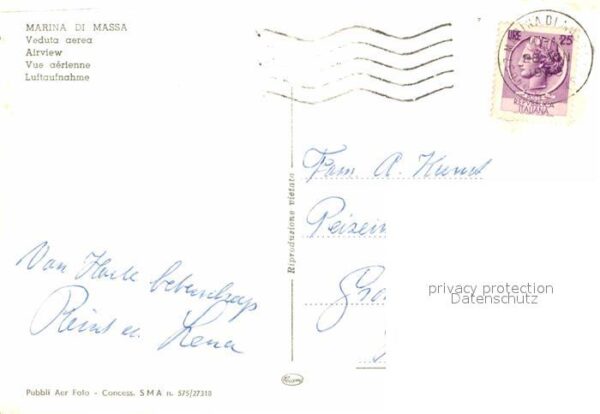 MARINA DI MASSA
Veduta aerea
Airview
Vue aérienne
Luftaufnahme
LIRE 25
REPUBBLICA
ITALIANA
Riproduzione vietata
Fam. A. Kunst
privacy protection
Datenschutz
Van Harte beterschap
Reint en Rena
Pubbli Aer Foto - Concess. S M A n. 575/27310